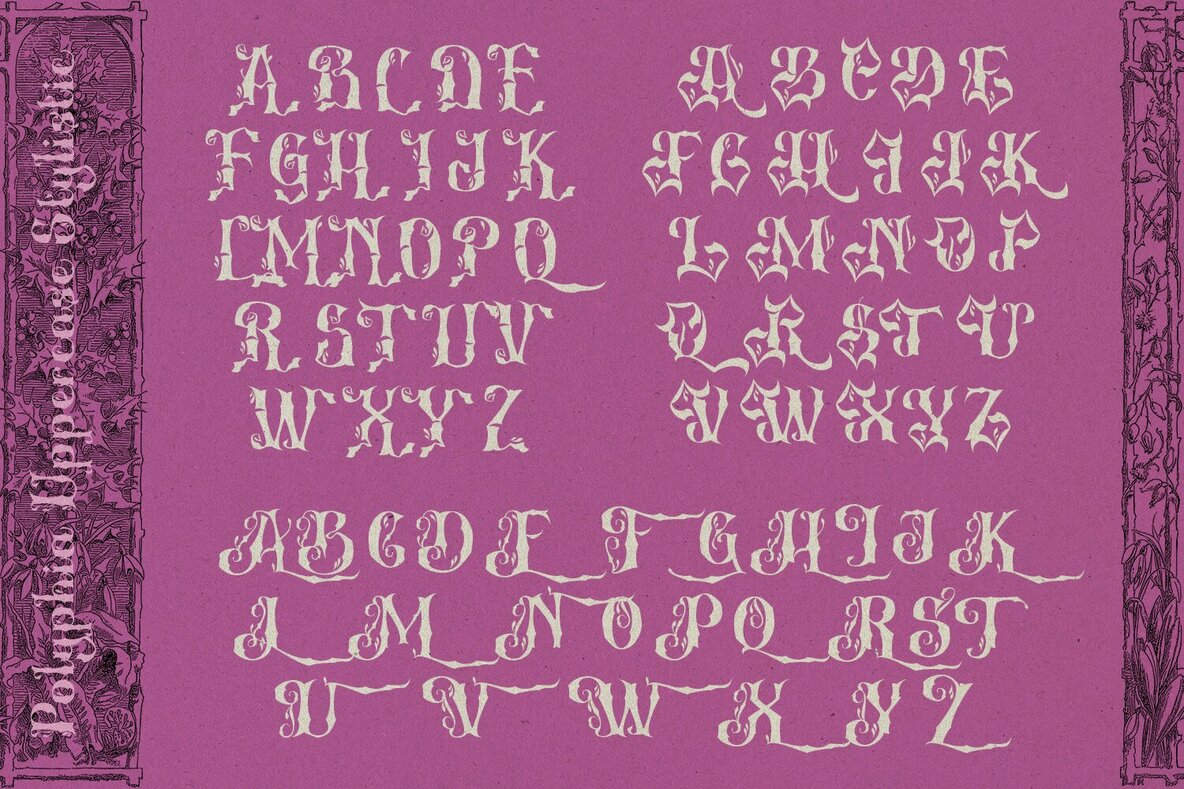 Polyphio Uppercase Stylistic
A B C D E
F G H I J K
L M N O P Q
R S T U V
W X Y Z
A B C D E
F G H I J K
L M N O P
Q R S T U
V W X Y Z
A B C D E F G H I J K
L M N O P Q R S T
U V W X Y Z